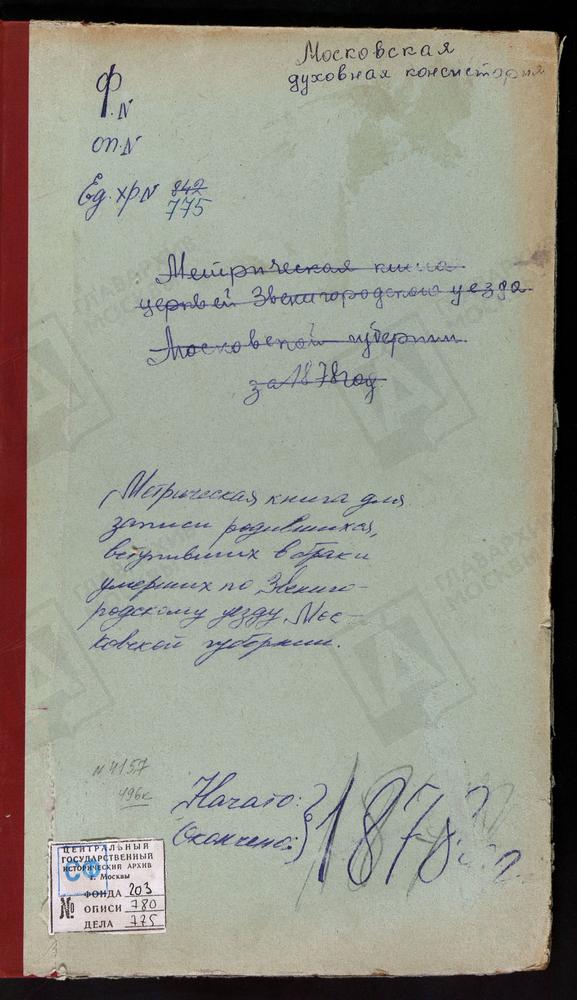 Московская
духовная консистория
Ф. N
оп. N
Ед. хр N 842
775
Метрическая книга
церквей Звенигородского уезда
Московской губернии
за 1878 год
Метрическая книга для
записи родившихся,
вступивших в браки
умерших по Звениго-
родскому уезду, Мос-
ковской губернии.
N 4157
496к
Начато:
Окончено:
1878 г.
ЦЕНТРАЛЬНЫЙ
ГОСУДАРСТВЕННЫЙ
ИСТОРИЧЕСКИЙ АРХИВ
г. Москвы
СФ
ФОНДА 203
№ ОПИСИ 780
ДЕЛА 775